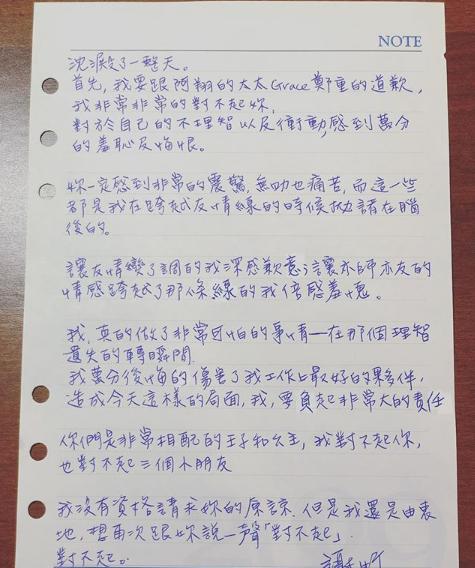 NOTE
沈澱了一整天。
首先,我要跟阿翔的太太Grace鄭重的道歉,
我非常非常的對不起妳,
對於自己的不理智以及衝動,感到萬分
的羞恥及悔恨。
妳一定感到非常的震驚,無助也痛苦,而這一些
都是我在跨越友情線的時候拋諸在腦
後的。
讓友情變了調的我深感歉意;讓亦師亦友的
情感跨越了那條線的我倍感羞愧。
我,真的做了非常可怕的事情—在那個理智
遺失的轉瞬間.
我萬分後悔的傷害了我工作上最好的夥伴,
造成今天這樣的局面,我,要負起非常大的責任
你們是非常相配的王子和公主,我對不起你,
也對不起三個小朋友
我沒有資格請求妳的原諒.但是我還是由衷
地,想再次跟妳說一聲「對不起」.
對不起。